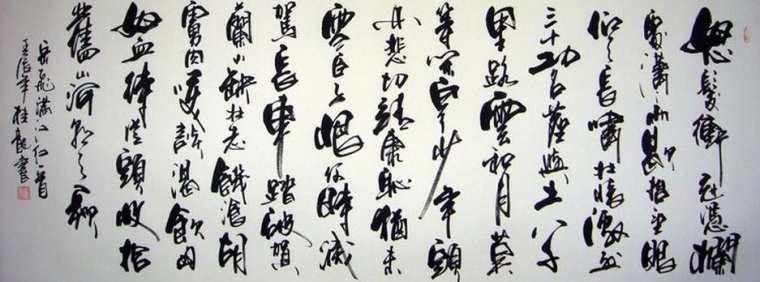 怒髮衝冠憑欄
處瀟瀟雨歇抬望眼
仰天長嘯壯懷激烈
三十功名塵與土八千
里路雲和月莫
等閒白了少年頭
空悲切靖康恥猶未
雪臣子恨何時滅
駕長車踏破賀
蘭山缺壯志飢餐胡
虜肉笑談渴飲匈
奴血待從頭收拾
舊山河朝天闕
岳飛滿江紅一首
年桂龍書